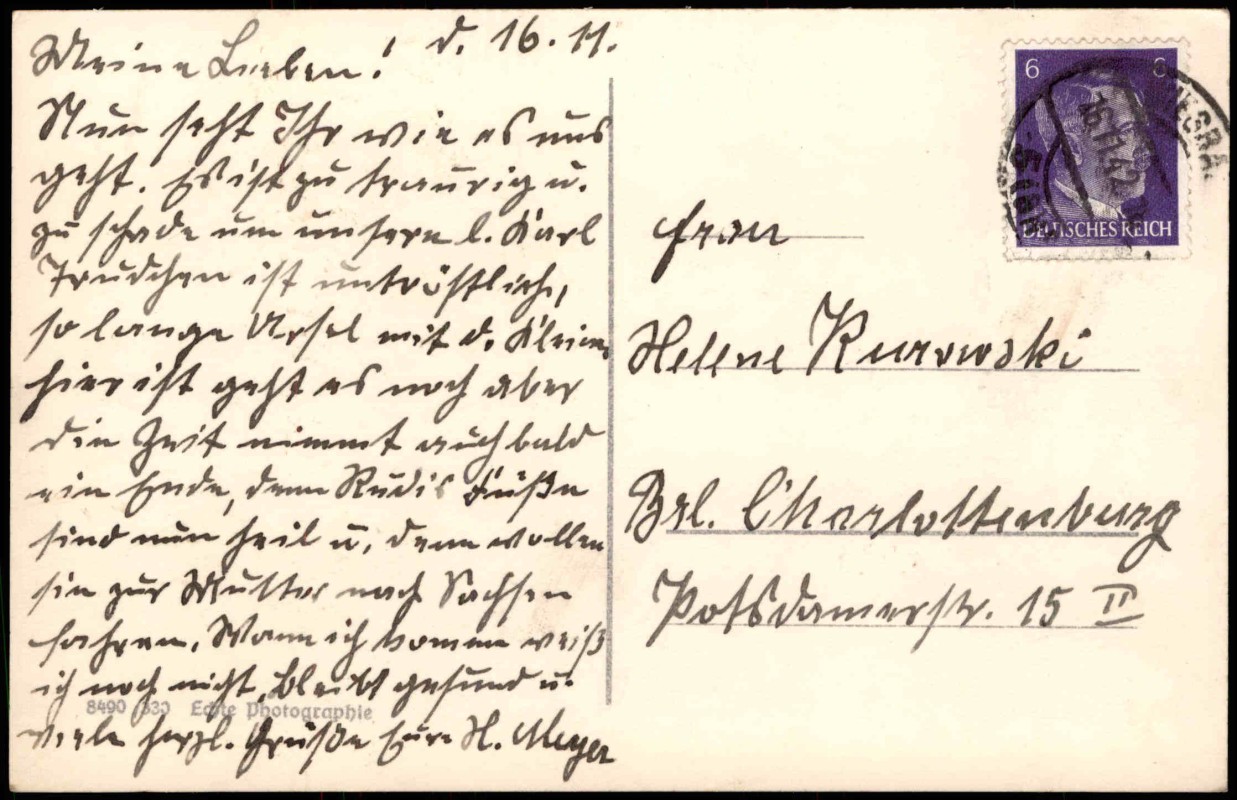 Meine Lieben! d. 16.11.
Nun seht Ihr wie es uns
geht. Es ist zu traurig u.
zu schade um unsern l. Karl
Trudchen ist untröstlich,
so lange Ursel mit d. Kleinen
hier ist geht es noch aber
die Zeit nimmt auch bald
ein Ende, denn Rudis Füße
sind nun heil u. dann wollen
sie zur Mutter nach Sachsen
fahren. Wann ich komme weiß
ich noch nicht, bleibt gesund u.
8490 330 Echte Photographie
viele herzl. Grüße Eure H. Meyer
6 6
16.11.42
DEUTSCHES REICH
Frau
Helene Kurowski
Brl. Charlottenburg
Potsdamerstr. 15 II